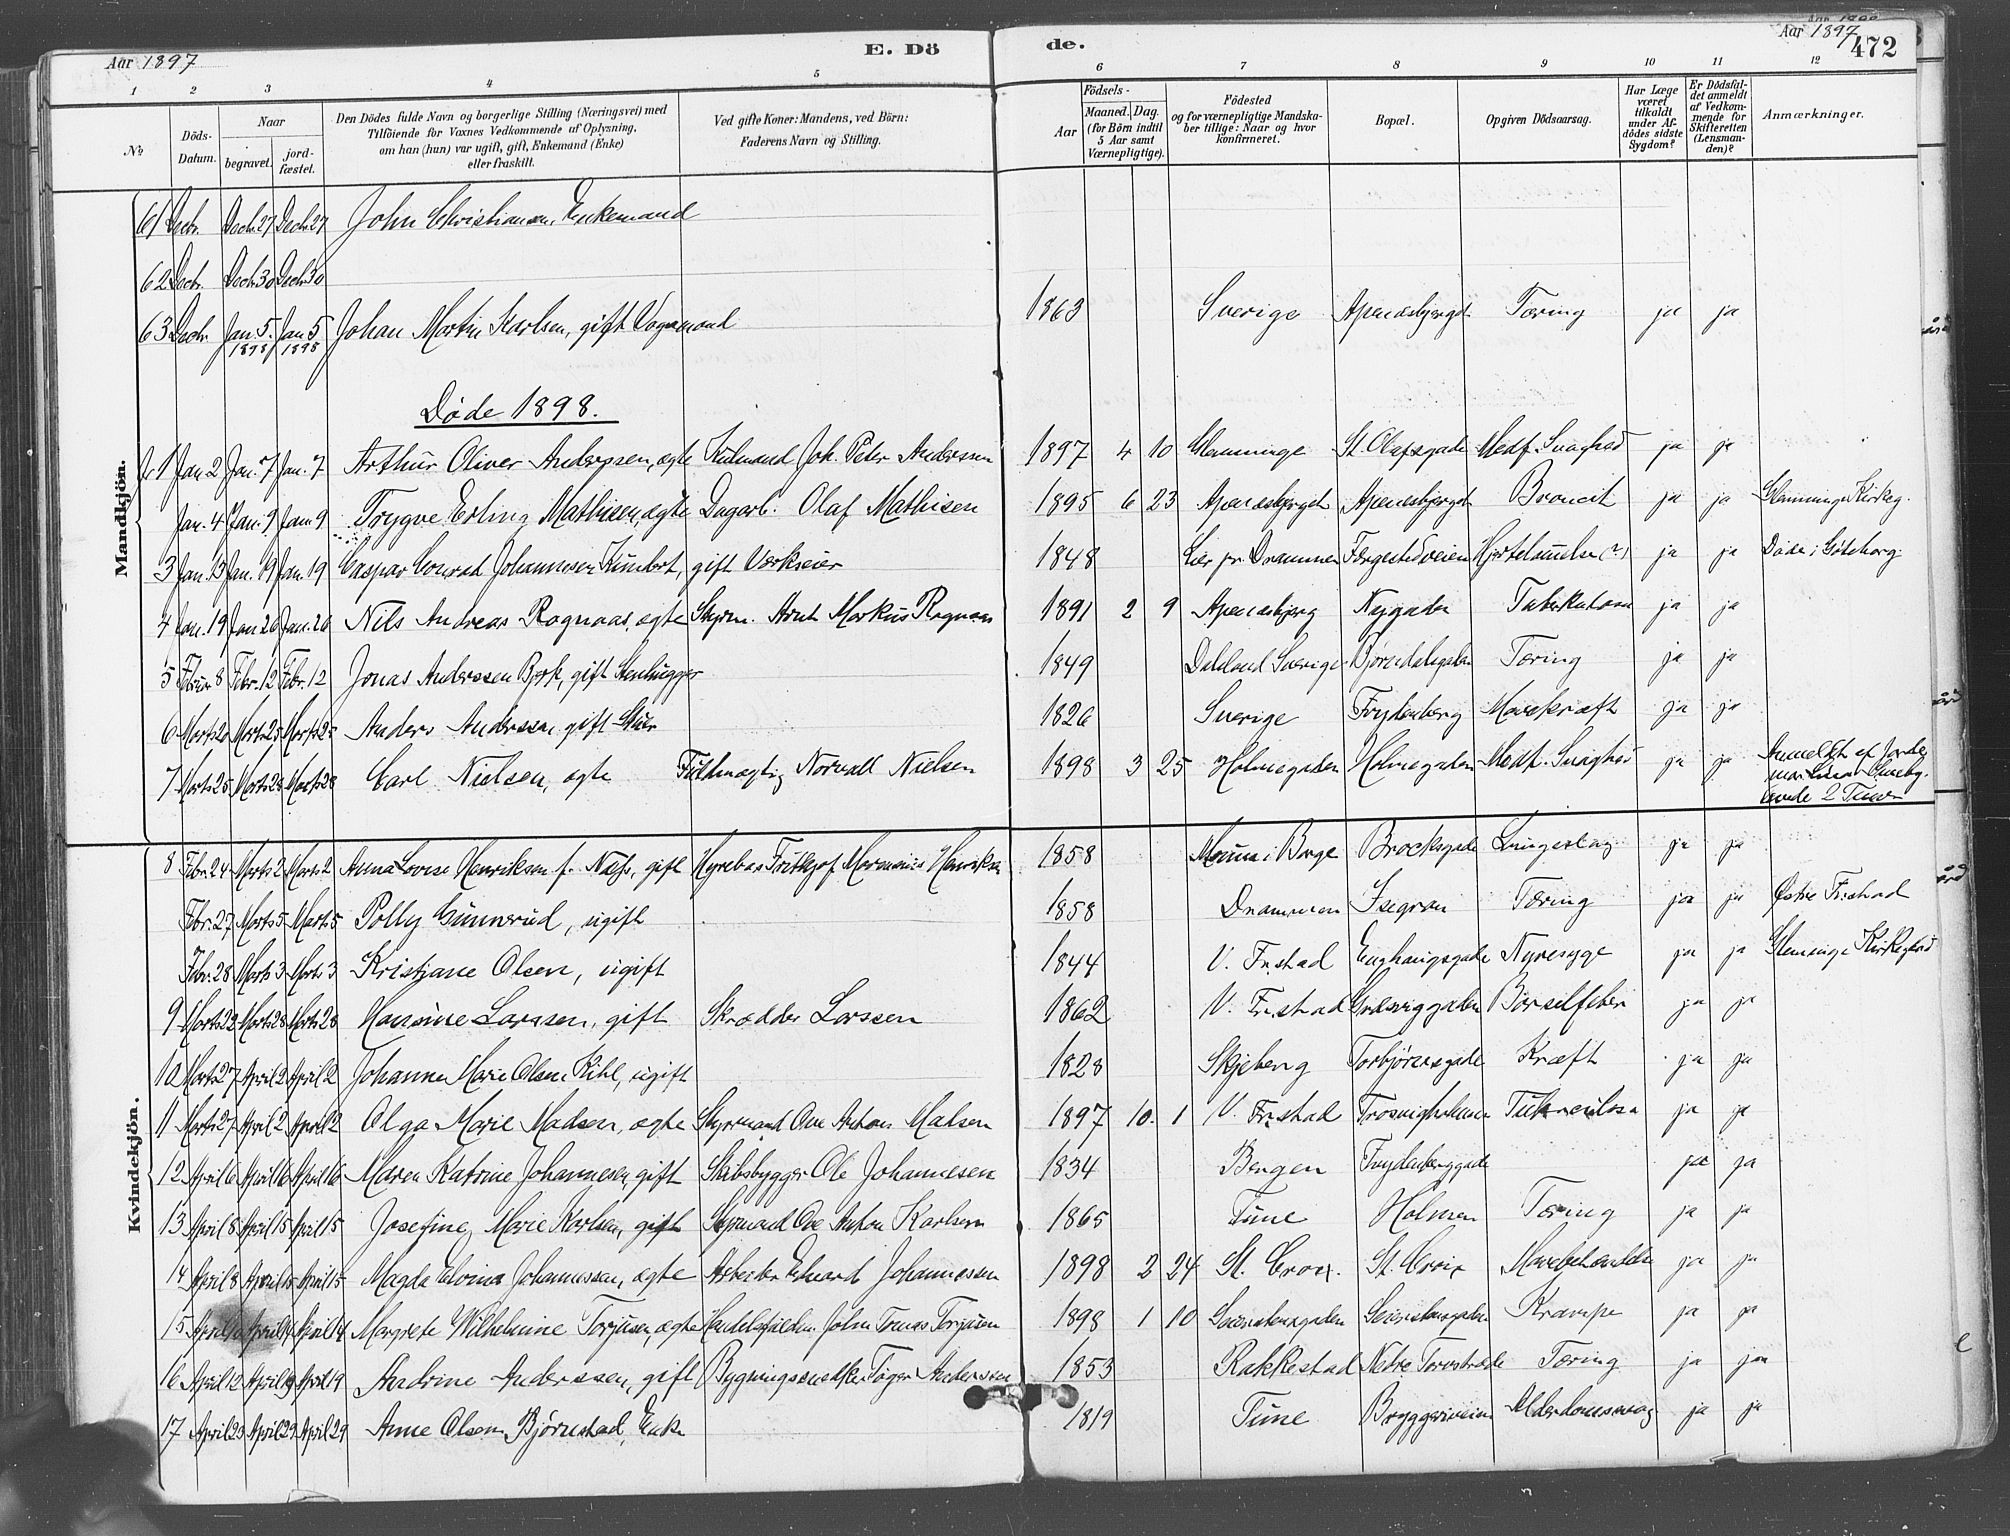 Aar 1897 E. Dö de. Aar 1897 472
1 2 3 4 5 6 7 8 9 10 11 12
№
Döds-Datum.
Naar begravet. jordfæstet.
Den Dödes fulde Navn og borgerlige Stilling (Næringsvei) med
Tilföiende for Voxnes Vedkommende af Oplysning,
om han (hun) var ugift, gift, Enkemand (Enke)
eller fraskilt.
Ved gifte Koner: Mandens, ved Börn:
Faderens Navn og Stilling.
Födsels-
Aar Maaned. Dag.
(for Börn indtil 5 Aar samt Værnepligtige).
Födested
og for værnepligtige Mandskaber tillige: Naar og hvor konfirmeret.
Bopæl.
Opgiven Dödsaarsag.
Har Læge været tilkaldt under Afdödes sidste Sygdom?
Er Dödsfaldet anmeldt af Vedkommende for Skifteretten (Lensmanden)?
Anmærkninger.
Mandkjön.
61 Decbr. Decbr 27 Decbr 27 John Christiansen, Enkemand
62 Decbr. Decbr 30 Decbr 30
63 Decbr. Jan. 5. 1898 Jan 5 1898 Johan Martin Karlsen, gift 1863 Sverige Tæring ja ja
Døde 1898.
1 Jan 2 Jan. 7 Jan. 7 Arthur Oliver Anderssen, ægte Joh. Peter Anderssen 1897 4 10 Glemminge St. Olafsgade Medf. Svaghed ja ja
Jan. 4 Jan. 9 Jan 9 Trygve Erling Mathisen, ægte Dagarb. Olaf Mathisen 1895 6 23 ja ja Glemminge Kirkeg.
3 Jan. 13 Jan. 19 Jan. 19 Caspar Conrad Johannesen gift Værkseier 1848 Lier pr. Drammen Hjertelammelse (?) ja ja Døde i Göteborg
4 Jan. 19 Jan 26 Jan. 26 Nils Andreas Rognaas, ægte Styrm. Markus Rognaas 1891 2 9 Apenæsbjerg Nygaden Tuberkulose ja ja
5 Februar 8 Febr. 12 Febr. 12 Jonas Anderssen Bjørk, gift Stenhugger 1849 Dalsland Sverige Bjørndalsgaden Tæring ja ja
6 Marts 20 Marts 25 Marts 25 Anders Anderssen, gift 1826 Sverige Frydenberg Mavekræft ja ja
7 Marts 25 Marts 28 Marts 28 Carl Nielsen, ægte Fuldmægtig Norvall Nielsen 1898 3 25 Holmegaden Holmegaden Medf. Svaghed ja ja Anmeldt af
levede 2 Timer
Kvindekjön.
8 Febr. 24 Marts 2 Marts 2 Anna Lovise Henriksen f. Næss, gift Hyrebas Frithjof Henriksen 1858 Moum i Borge Brocksgade ja ja
Febr. 27 Marts 5 Marts 5 Polly Gunnerud, ugift 1858 Drammen Isegran Tæring ja ja Østre Fr.stad
Febr. 28 Marts 3 Marts 3 Kristiane Olsen, ugift 1844 V. Fr.stad Enghaugsgade Nyresyge ja ja Glemminge Kirkegaard
9 Marts 22 Marts 28 Marts 28 Hansine Larssen, gift Skrædder Larssen 1862 V. Fr.stad Barselfeber ja ja
10 Marts 27 April 2 April 2 Johanne Marie Olsen Kihl, ugift 1828 Skjeberg Torbjørnsgade Kræft ja ja
11 Marts 27 April 2 April 2 Olga Marie Madsen, ægte Styrmand Ove Anton Madsen 1897 10. 1 V. Fr.stad Trosvigholmen Tuberculose ja ja
12 April 6 April 16 April 16 Maren Katrine Johannesen, gift Skibsbygger Ole Johannesen 1834 Bergen Frydenberggade ja ja
13 April 8 April 15 April 15 Josefine Marie Karlsen, gift Styrmand Ove Anton Karlsen 1865 Tune Holmen Tæring ja ja
14 April 8 April 15 April 15 Magda Elvina Johannessen, ægte Arbeider Edvard Johannessen 1898 2 24 St. Croix. St. Croix ja ja
15 April April 14 April 14 Margrete Wilhelmine Torjusen, ægte John Tomas Torjusen 1898 1 10 Krampe ja ja
16 April 12 April 19 April 19 Andrine Anderssen, gift Bygningssnedker Tøger Anderssen 1853 Rakkestad Nedre Torvstræde Tæring ja ja
17 April 23 April 29 April 29 Anne Olsen Bjørnstad, Enke 1819 Tune Bryggeriveien Alderdomssvag ja ja